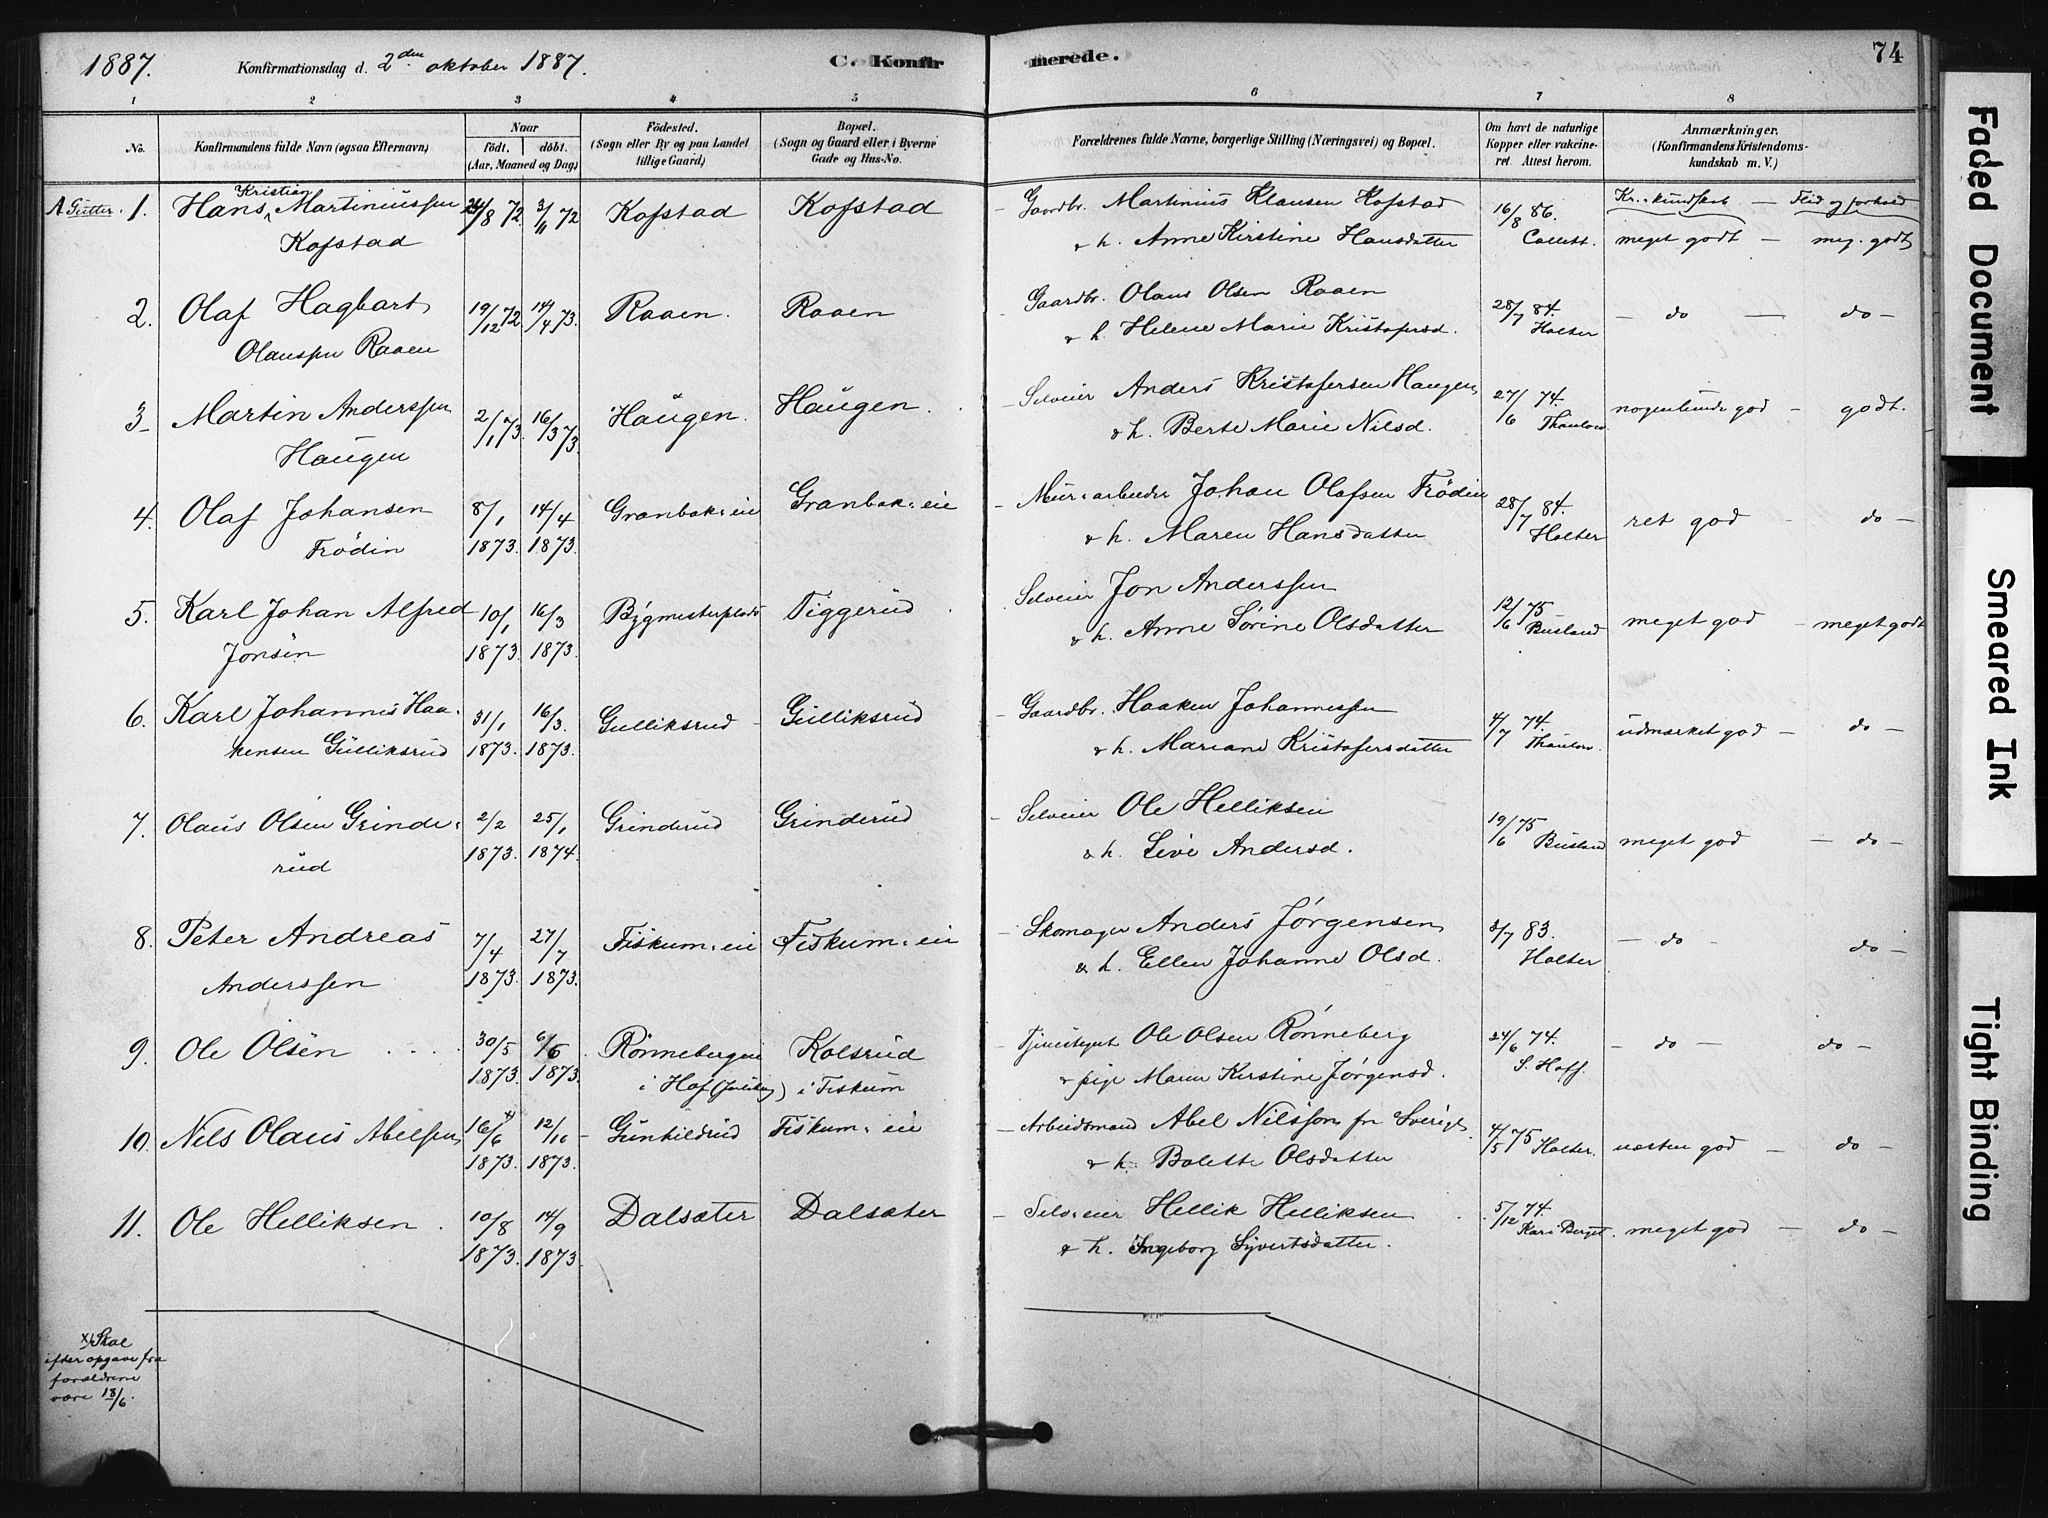 1887. Konfirmationsdag d. 2den oktober 1887. C. Konfir merede. 74
1 2 3 4 5 6 7 8
No.
Konfirmandens fulde Navn (ogsaa Efternavn)
Naar
födt. döbt.
(Aar, Maaned og Dag)
Födested.
(Sogn eller By og paa Landet
tillige Gaard)
Bopæl.
(Sogn og Gaard eller i Byerne
Gade og Hus-No.
Forældrenes fulde Navne, borgerlige Stilling (Næringsvei) og Bopæl.
Om havt de naturlige
Kopper eller vakcine-
ret. Attest herom.
Anmærkninger.
(Konfirmandens Kristendoms-
kundskab m. V.)
A Gutter. 1. Hans Kristian Martiniussen 24/8 72. 3/11 72 Kofstad Kofstad – Gaardbr. Martinius Klausen Kofstad 16/8 86. Kr.-kundskab – Flid og forhold
Kofstad & h. Anne Kirstine Hansdatter Collett. meget godt – meg. godt
2. Olaf Hagbart 19/12 72 14/4 73. Raaen. Raaen Gaardbr. Olaus Olsen Raaen 28/7 84. – do – do –
Olaussen Raaen & h. Helene Marie Kristofersd. Holter
3 Martin Anderssen 2/1 73. 16/3 73 Haugen. Haugen. – Selveier Anders Kristofersen Haugen 27/6 74. nogenlunde god – godt.
Haugen & h. Berte Marie Nilsd. Thaulow.
4. Olaf Johansen 8/1 14/4 Granbak-eie Granbak-eie – Mur-arbeider Johan Olafsen Frödin 28/7 84. ret god – do –
Frödin 1873. 1873. & h. Maren Hansdatter Holter
5. Karl Johan Alfred 10/1 16/3 Bygmesterplads Tiggerud Selveier Jon Anderssen 12/6 75 meget god – meget godt
Jonsen 1873. 1873. & h. Anne Sörine Olsdatter Busland
6. Karl Johannes Haa- 31/1 16/3 Gulliksrud – Gulliksrud – Gaardbr. Haaken Johannessen 4/7 74. udmærket god – do –
kensen Gulliksrud 1873. 1873. & h. Mariane Kristofersdatter Thaulow.
7. Olaus Olsen Grinde- 2/2 25/1 Grinderud Grinderud – Selveier Ole Helliksen 19/6 75 meget god – do –
rud 1873. 1874. & h. Live Andersd. Busland
8. Peter Andreas 7/4 27/7 Fiskum-eie Fiskum-eie – Skomager Anders Jörgensen 2/7 83. – do – do –
Anderssen 1873. 1873. & h. Ellen Johanne Olsd. Holter
9. Ole Olsen 30/5 6/6 Rönnebergeie Kolsrud Tjenestegut Ole Olsen Rönneberg 24/6 74. – do – do –
1873. 1873. i Hof (Jarlsberg) i Fiskum & pige Maren Kirstine Jörgensd. S. Hoff.
10. Nils Olaus Abelsen 16/6 x) 12/10 – Gunhildrud Fiskum-eie – Arbeidsmand Abel Nilsson fr Sverige 4/5 75 Holter. næsten god – do –
1873. 1873. & h. Bolette Olsdatter
11. Ole Helliksen. 10/8 14/9 Dalsæter Dalsæter – Selveier Hellik Helliksen 5/12 74. meget god – do –
1873. 1873. & h. Ingeborg Syvertsdatter. Kari Berget.
x) Skal
efter opgave fra
forældrene
være 18/6.
Faded Document
Smeared Ink
Tight Binding